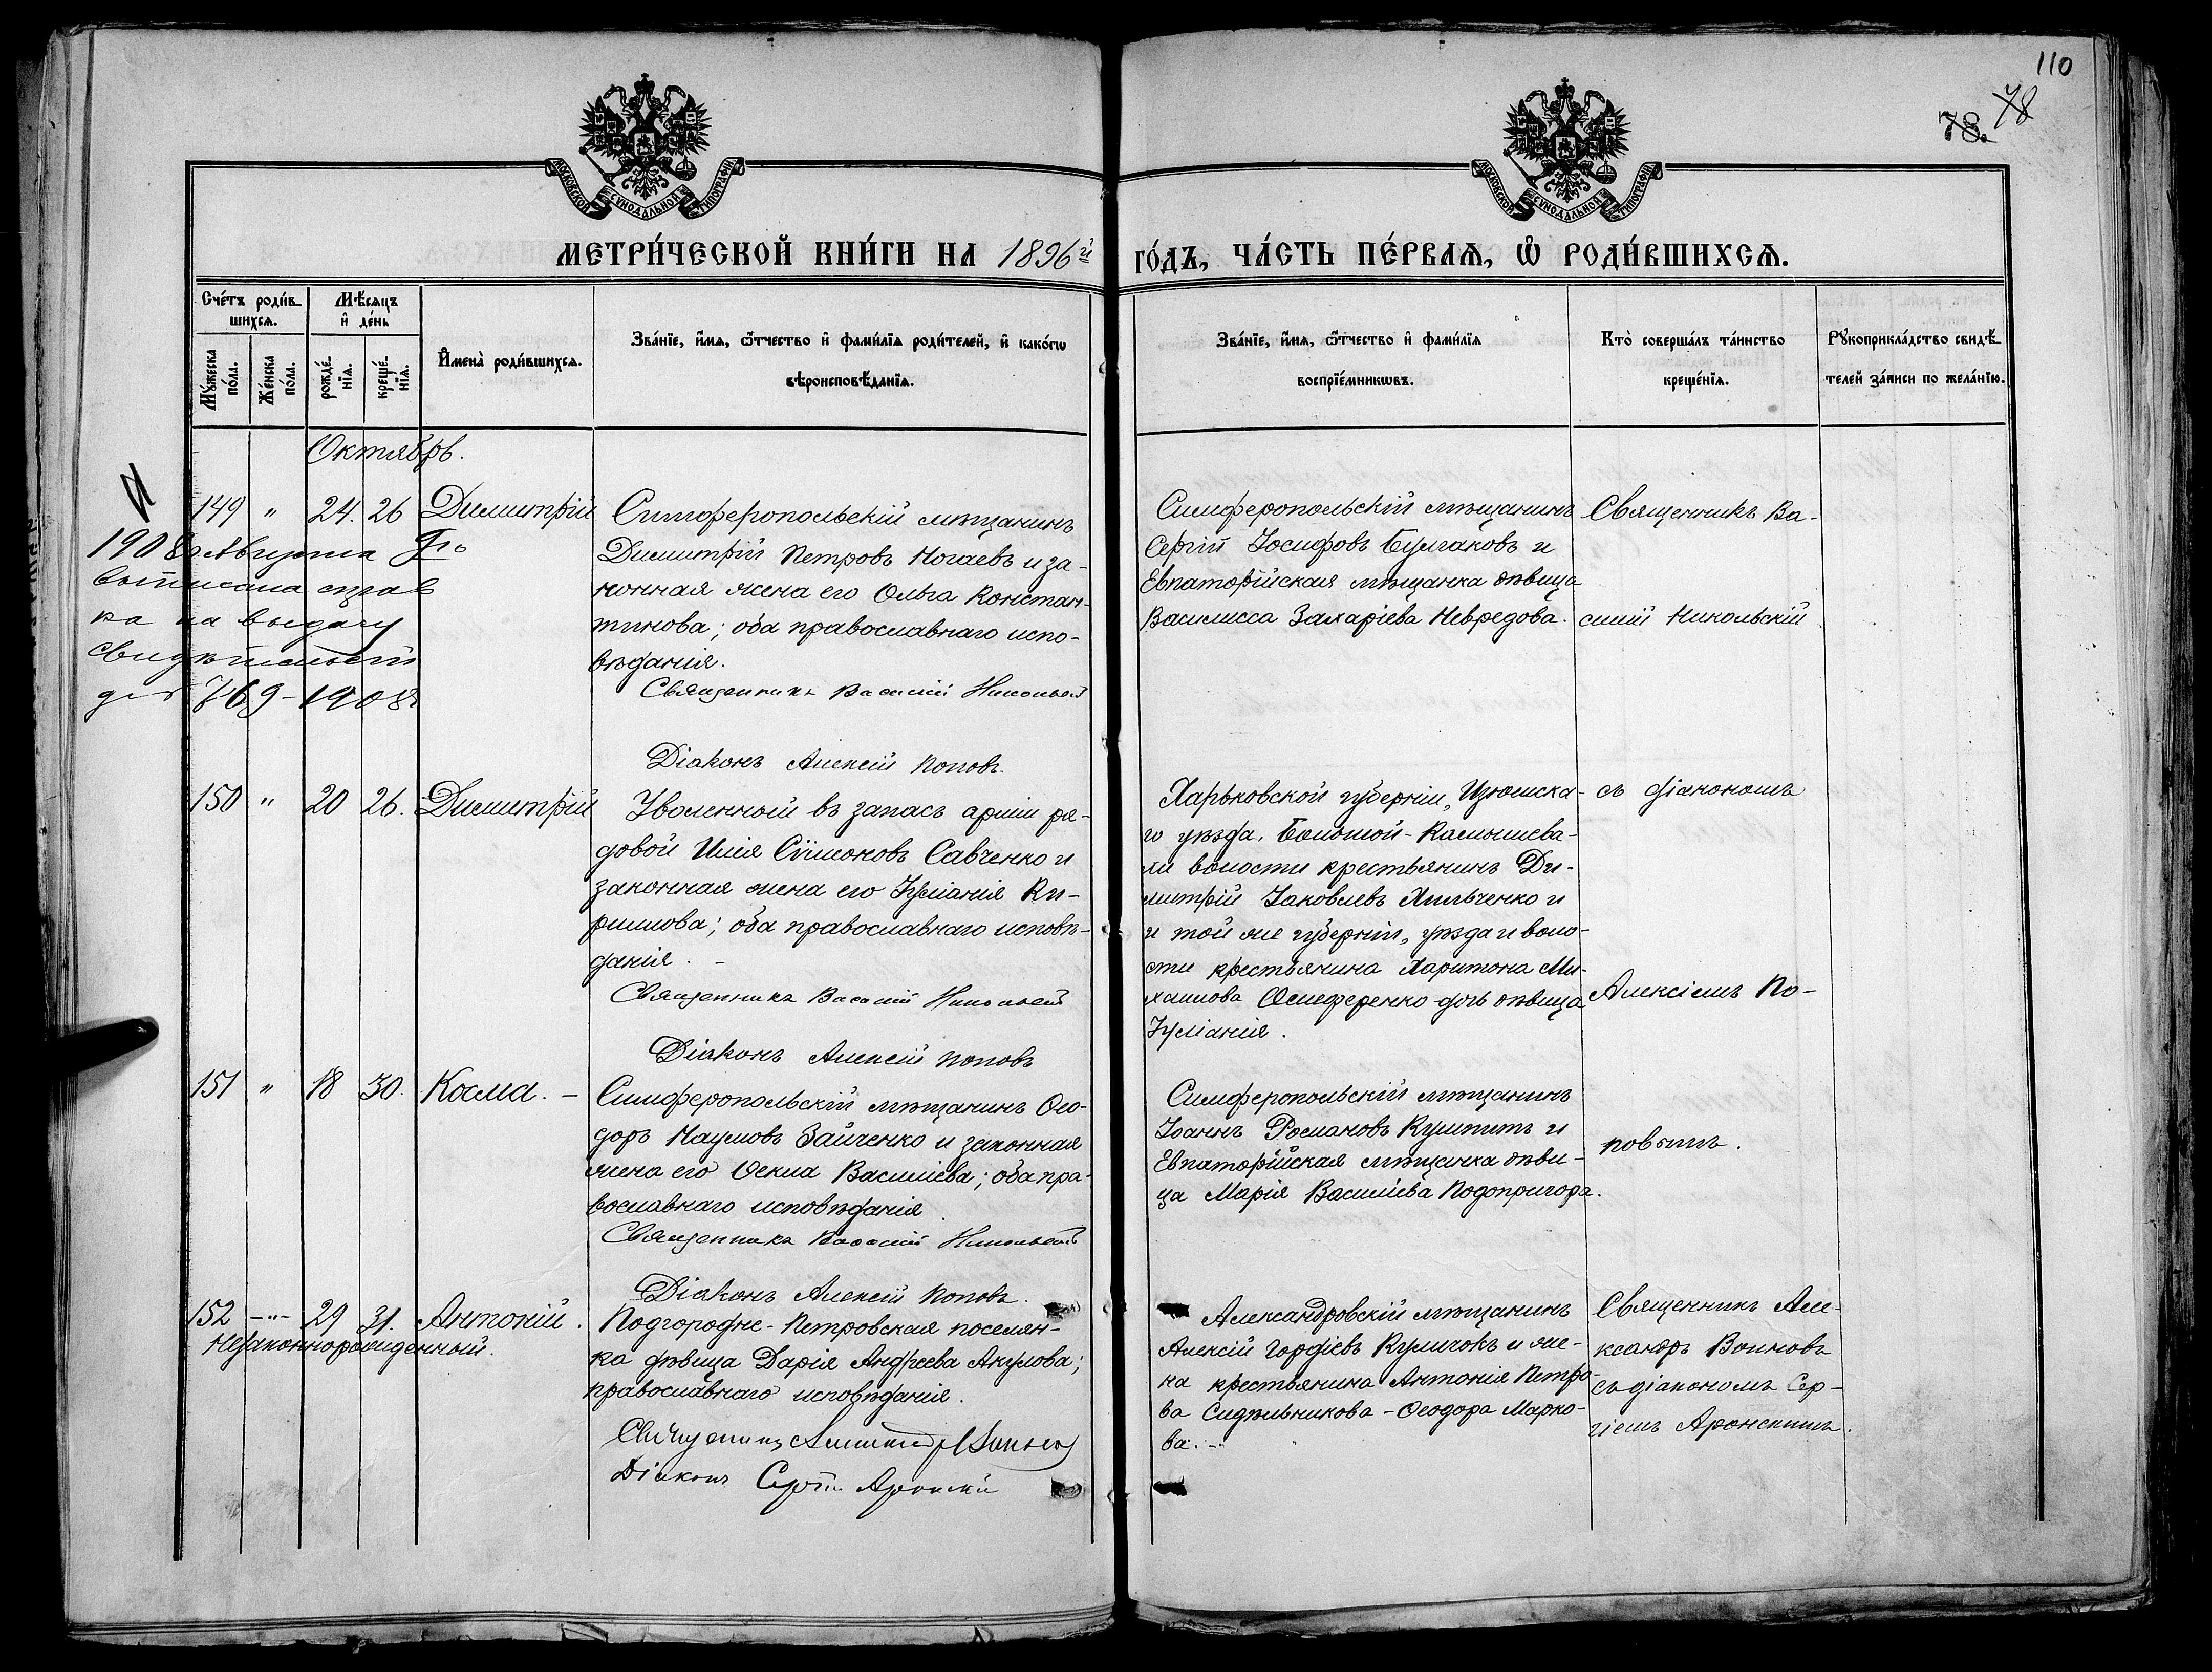 110
78. 78
МОСКОВСКОЙ СѴНОДАЛЬНОЙ ТИПОГРАФІИ
МОСКОВСКОЙ СѴНОДАЛЬНОЙ ТИПОГРАФІИ
МЕТРИ́ЧЕСКОЙ КНИ́ГИ НА 1896й
ГО́ДЪ, ЧА́СТЬ ПЕ́РВАѦ, Ѽ РОДИ́ВШИХСѦ.
Сче́тъ роди́в-
шихсѧ.
Мꙋ́жеска
по́ла.
Же́нска
по́ла.
Мѣ́сяцъ
и҆ де́нь
рожде́-
нїѧ.
креще́-
нїѧ.
И҆мена̀ роди́вшихсѧ.
Зва́нїе, и҆́мѧ, ѻ҆́тчество и҆ фами́лїѧ роди́телей, и҆ како́гѡ
вѣроисповѣ́данїѧ.
Зва́нїе, и҆́мѧ, ѻ҆́тчество и҆ фами́лїѧ
воспрїе́мникѡвъ.
Кто̀ соверша́лъ та́инство
креще́нїѧ.
Рꙋкоприкла́дство свидѣ́-
телей за́писи по жела́нїю.
Октябрь.
149 " 24. 26 Димитрій
Симферопольскій мѣщанинъ
Димитрій Петровъ Ногаевъ и за-
конная жена его Ольга Констан-
тинова; оба православнаго испо-
вѣданія.
Священникъ Василій Никольскій
Діаконъ Алексій Поповъ.
Симферопольскій мѣщанинъ
Сергій Іосифовъ Булгаковъ и
Евпаторійская мѣщанка дѣвица
Василисса Захаріева Невредова.
Священникъ Ва-
силій Никольскій
1908 Августа
выписана справ
ка на выдачу
свидѣтельств
769-1908
150 " 20 26. Димитрій
Уволенный въ запасъ арміи ря-
довой Илія Сѵмоновъ Савченко и
законная жена его Іуліанія Ки-
риллова; оба православнаго исповѣ-
данія. -
Священникъ Василій Никольскій
Діаконъ Алексій Поповъ
Харьковской губерніи, Изюмска-
го уѣзда, Большой-Камышева-
хи волости крестьянинъ Ди-
митрій Іаковлевъ Хильченко и
и той же губерніи, уѣзда и воло-
сти крестьянина Харитона Ми-
хаилова Олеференко дочь дѣвица
Іуліанія.
съ діакономъ
Алексіемъ По-
151 " 18 30. Косма. -
Симферопольскій мѣщанинъ Ѳео-
доръ Наумовъ Зайченко и законная
жена его Ѳекла Василіева; оба пра-
вославнаго исповѣданія.
Священникъ Василій Никольскій
Діаконъ Алексій Поповъ.
Симферопольскій мѣщанинъ
Іоаннъ Романовъ и
Евпаторійская мѣщанка дѣви-
ца Марія Василіева Подопригора.
повымъ.
152 -"- 29 31. Антоній.
Незаконнорожденный.
Подгородне-Петровская поселян-
ка дѣвица Дарія Андреева Акулова;
православнаго исповѣданія.
Священникъ Александръ Воиновъ
Діаконъ Сергій Аронскій
Александровскій мѣщанинъ
Алексій Гордіевъ Куличокъ и же-
на крестьянина Антонія Петро-
ва Сидѣльникова - Ѳеодора Марко-
ва. -
Священникъ Але-
ксандръ Воиновъ
съ діакономъ Сер-
гіемъ Аронскимъ.